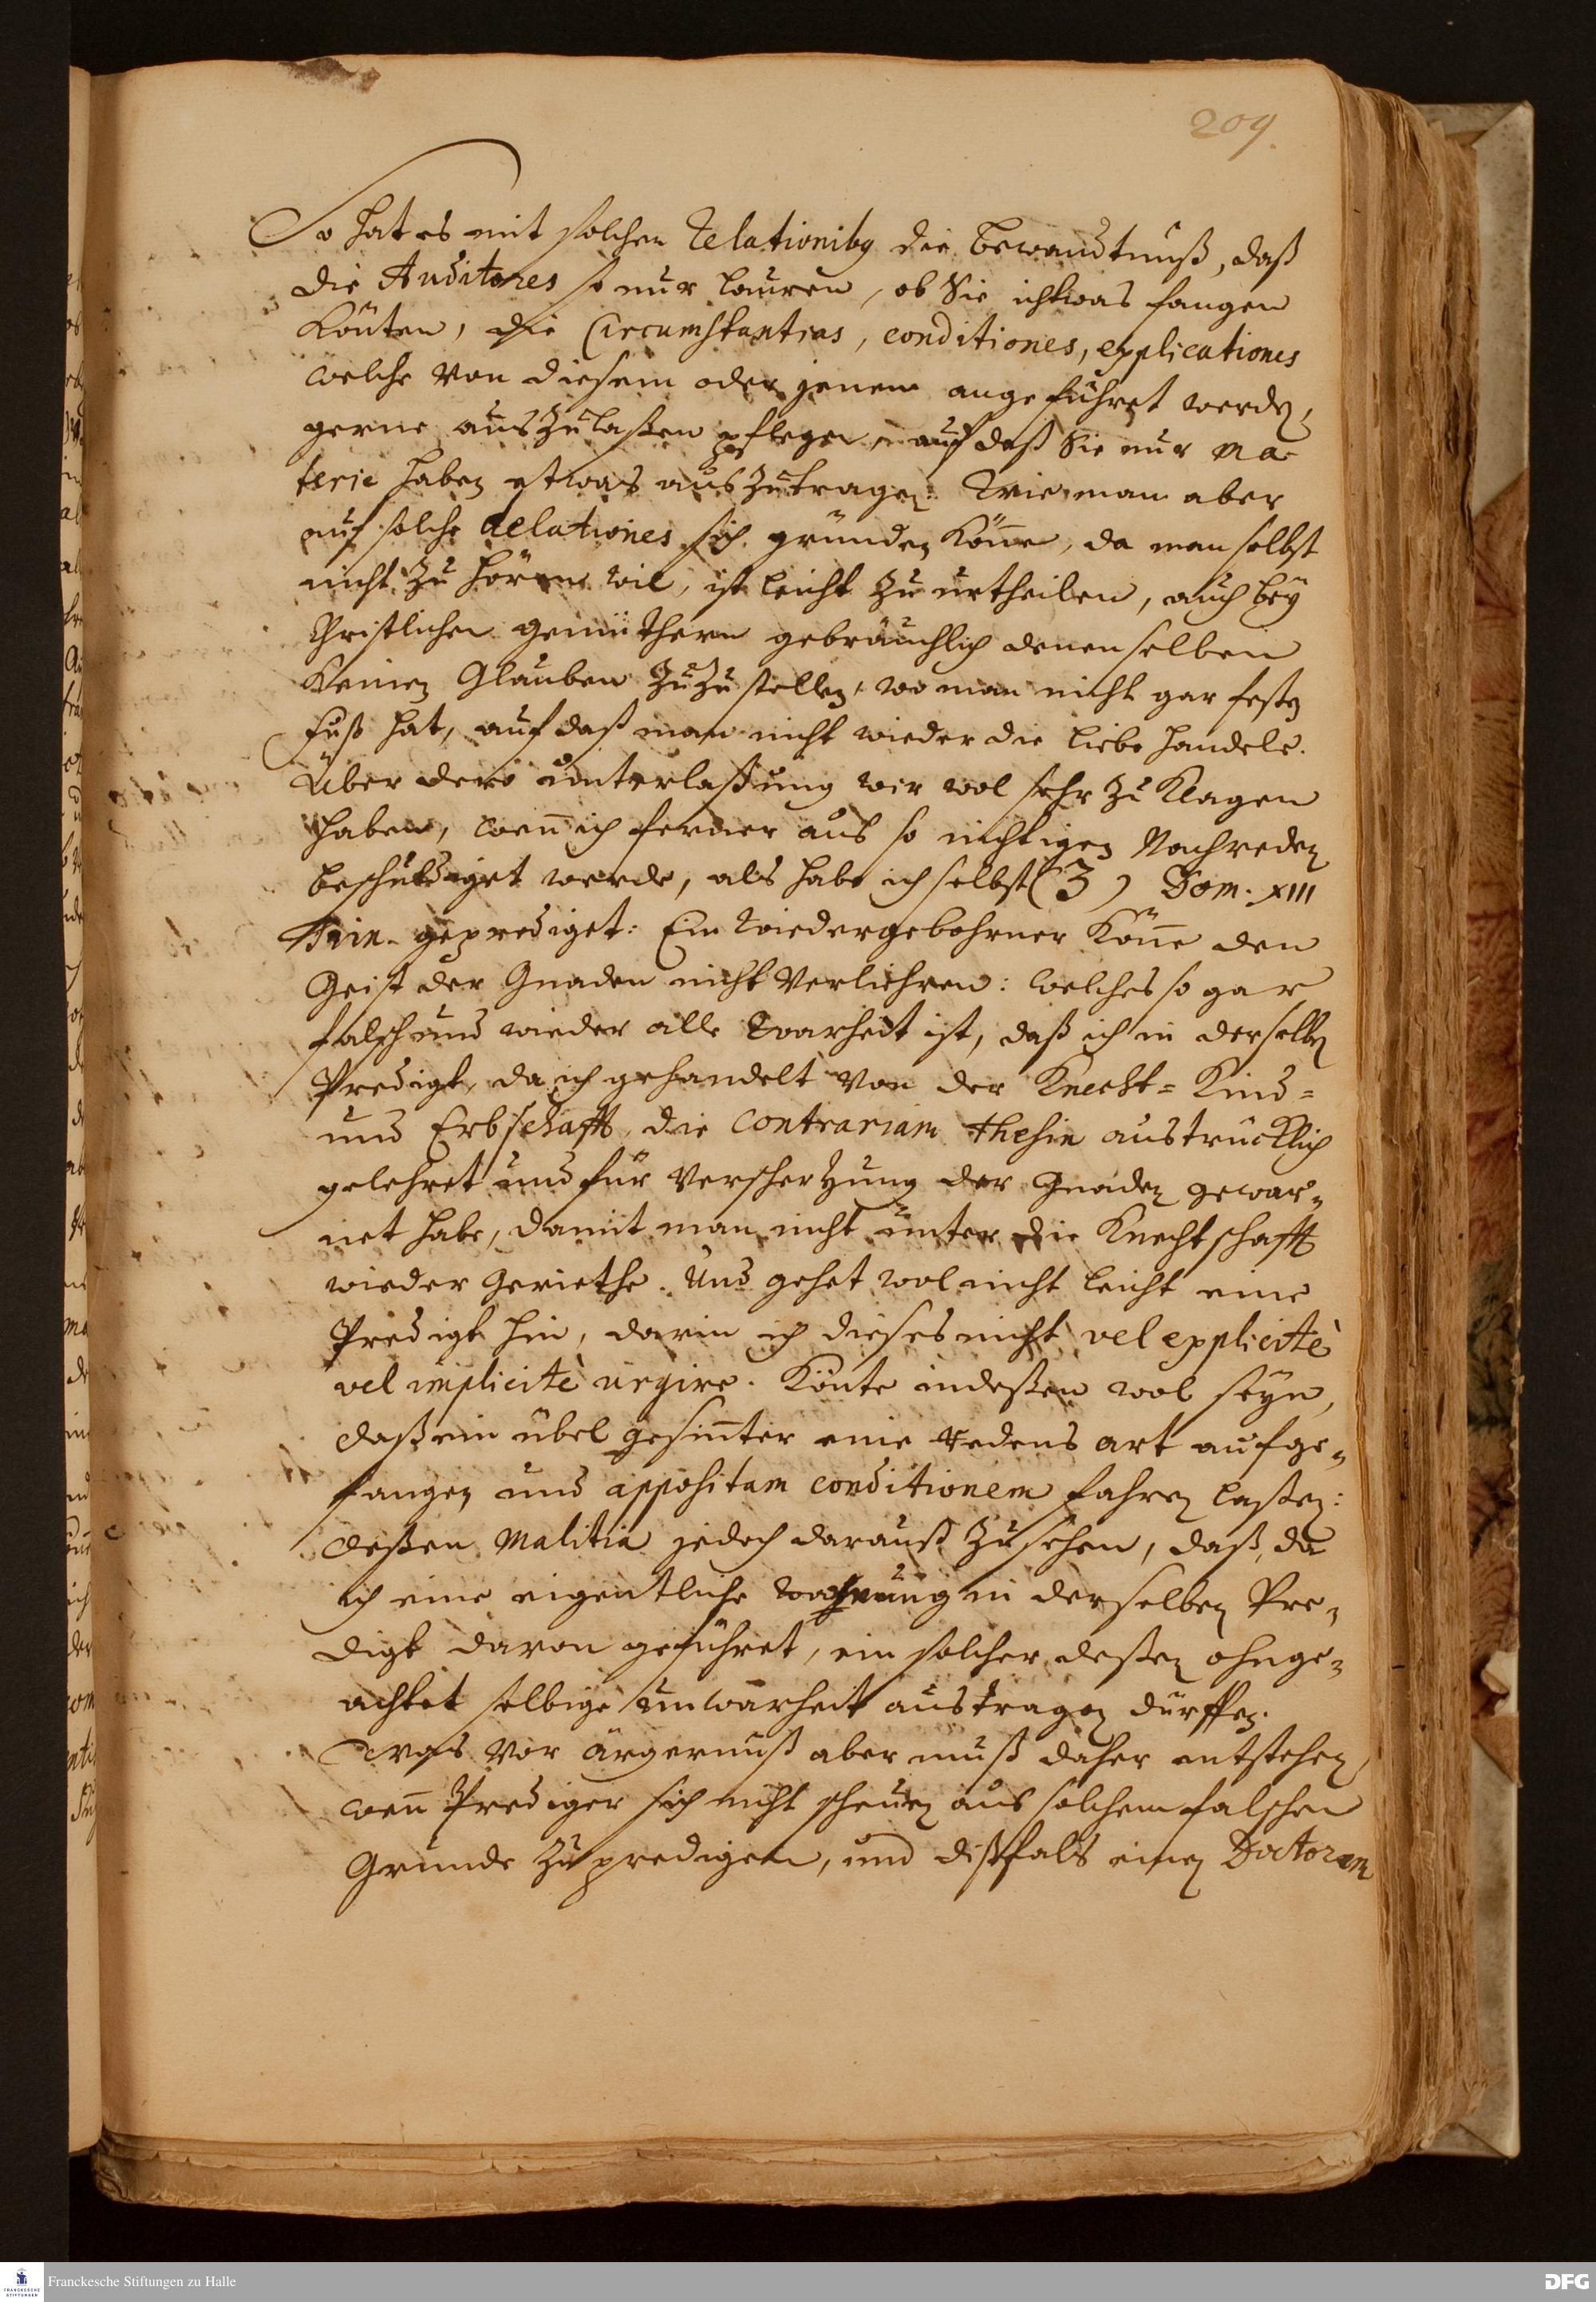 209.
So hat es mit solchen Relationibq die bewandtnuß, daß
die Auditores so nur lauren, ob Sie ichtwas fangen
könten, die Circumstantias, conditiones, explicationes
welche von diesem oder jenem angeführet werden,
gerne auszulaßen pflegen, auf daß Sie nur ma-
terie haben etwas auszutragen. Wie man aber
auf solche delationes sich gründen könne, da man selbst
nicht zu hören wil, ist leicht zu urtheilen, auch bey
Christlichen gemüthern gebräuchlich denenselben
keinen Glauben zuzustellen, wo man nicht gar festen
Fuß hat, auf daß man nicht wieder die liebe handele.
Über dero unterlaßung wir wol sehr zu klagen
haben, wenn ich ferner aus so nichtigen Nachreden
beschuldiget werde, als habe ich selbst (3) Dom. XIII
Trin. geprediget: Ein wiedergebohrner könne den
Geist der Gnaden nicht verliehren: welches so gar
falsch und wieder alle warheit ist, daß ich in derselben
Predigt, da ich gehandelt von der Knecht= Kind=
und Erbschafft, die contrariam thesin austrücklich
gelehret und für verschertzung der Gnaden gewar=
net habe, damit man nicht unter die Knechtschafft
wieder geriethe. Und gehet wol nicht leicht eine
Predigt hin, darin ich dieses nicht vel explicitè
vel implicitè urgire. Könte indeßen wol seyn,
daß ein übel gesinnter eine redens art aufge=
fangen und appositam conditionem fahren laßen:
deßen malitia jedoch darauß zusehen, daß, da
ich eine eigentliche warnung in derselben Pre=
digt davon geführet, ein solcher deßen ohnge=
achtet selbige unwarheit austragen dürffen.
Was vor ärgernuß aber muß daher entstehen,
wenn Prediger sich nicht scheuen aus solchem falschen
Grunde zu predigen, und dißfals einen Doctorem
Franckesche Stiftungen zu Halle
DFG